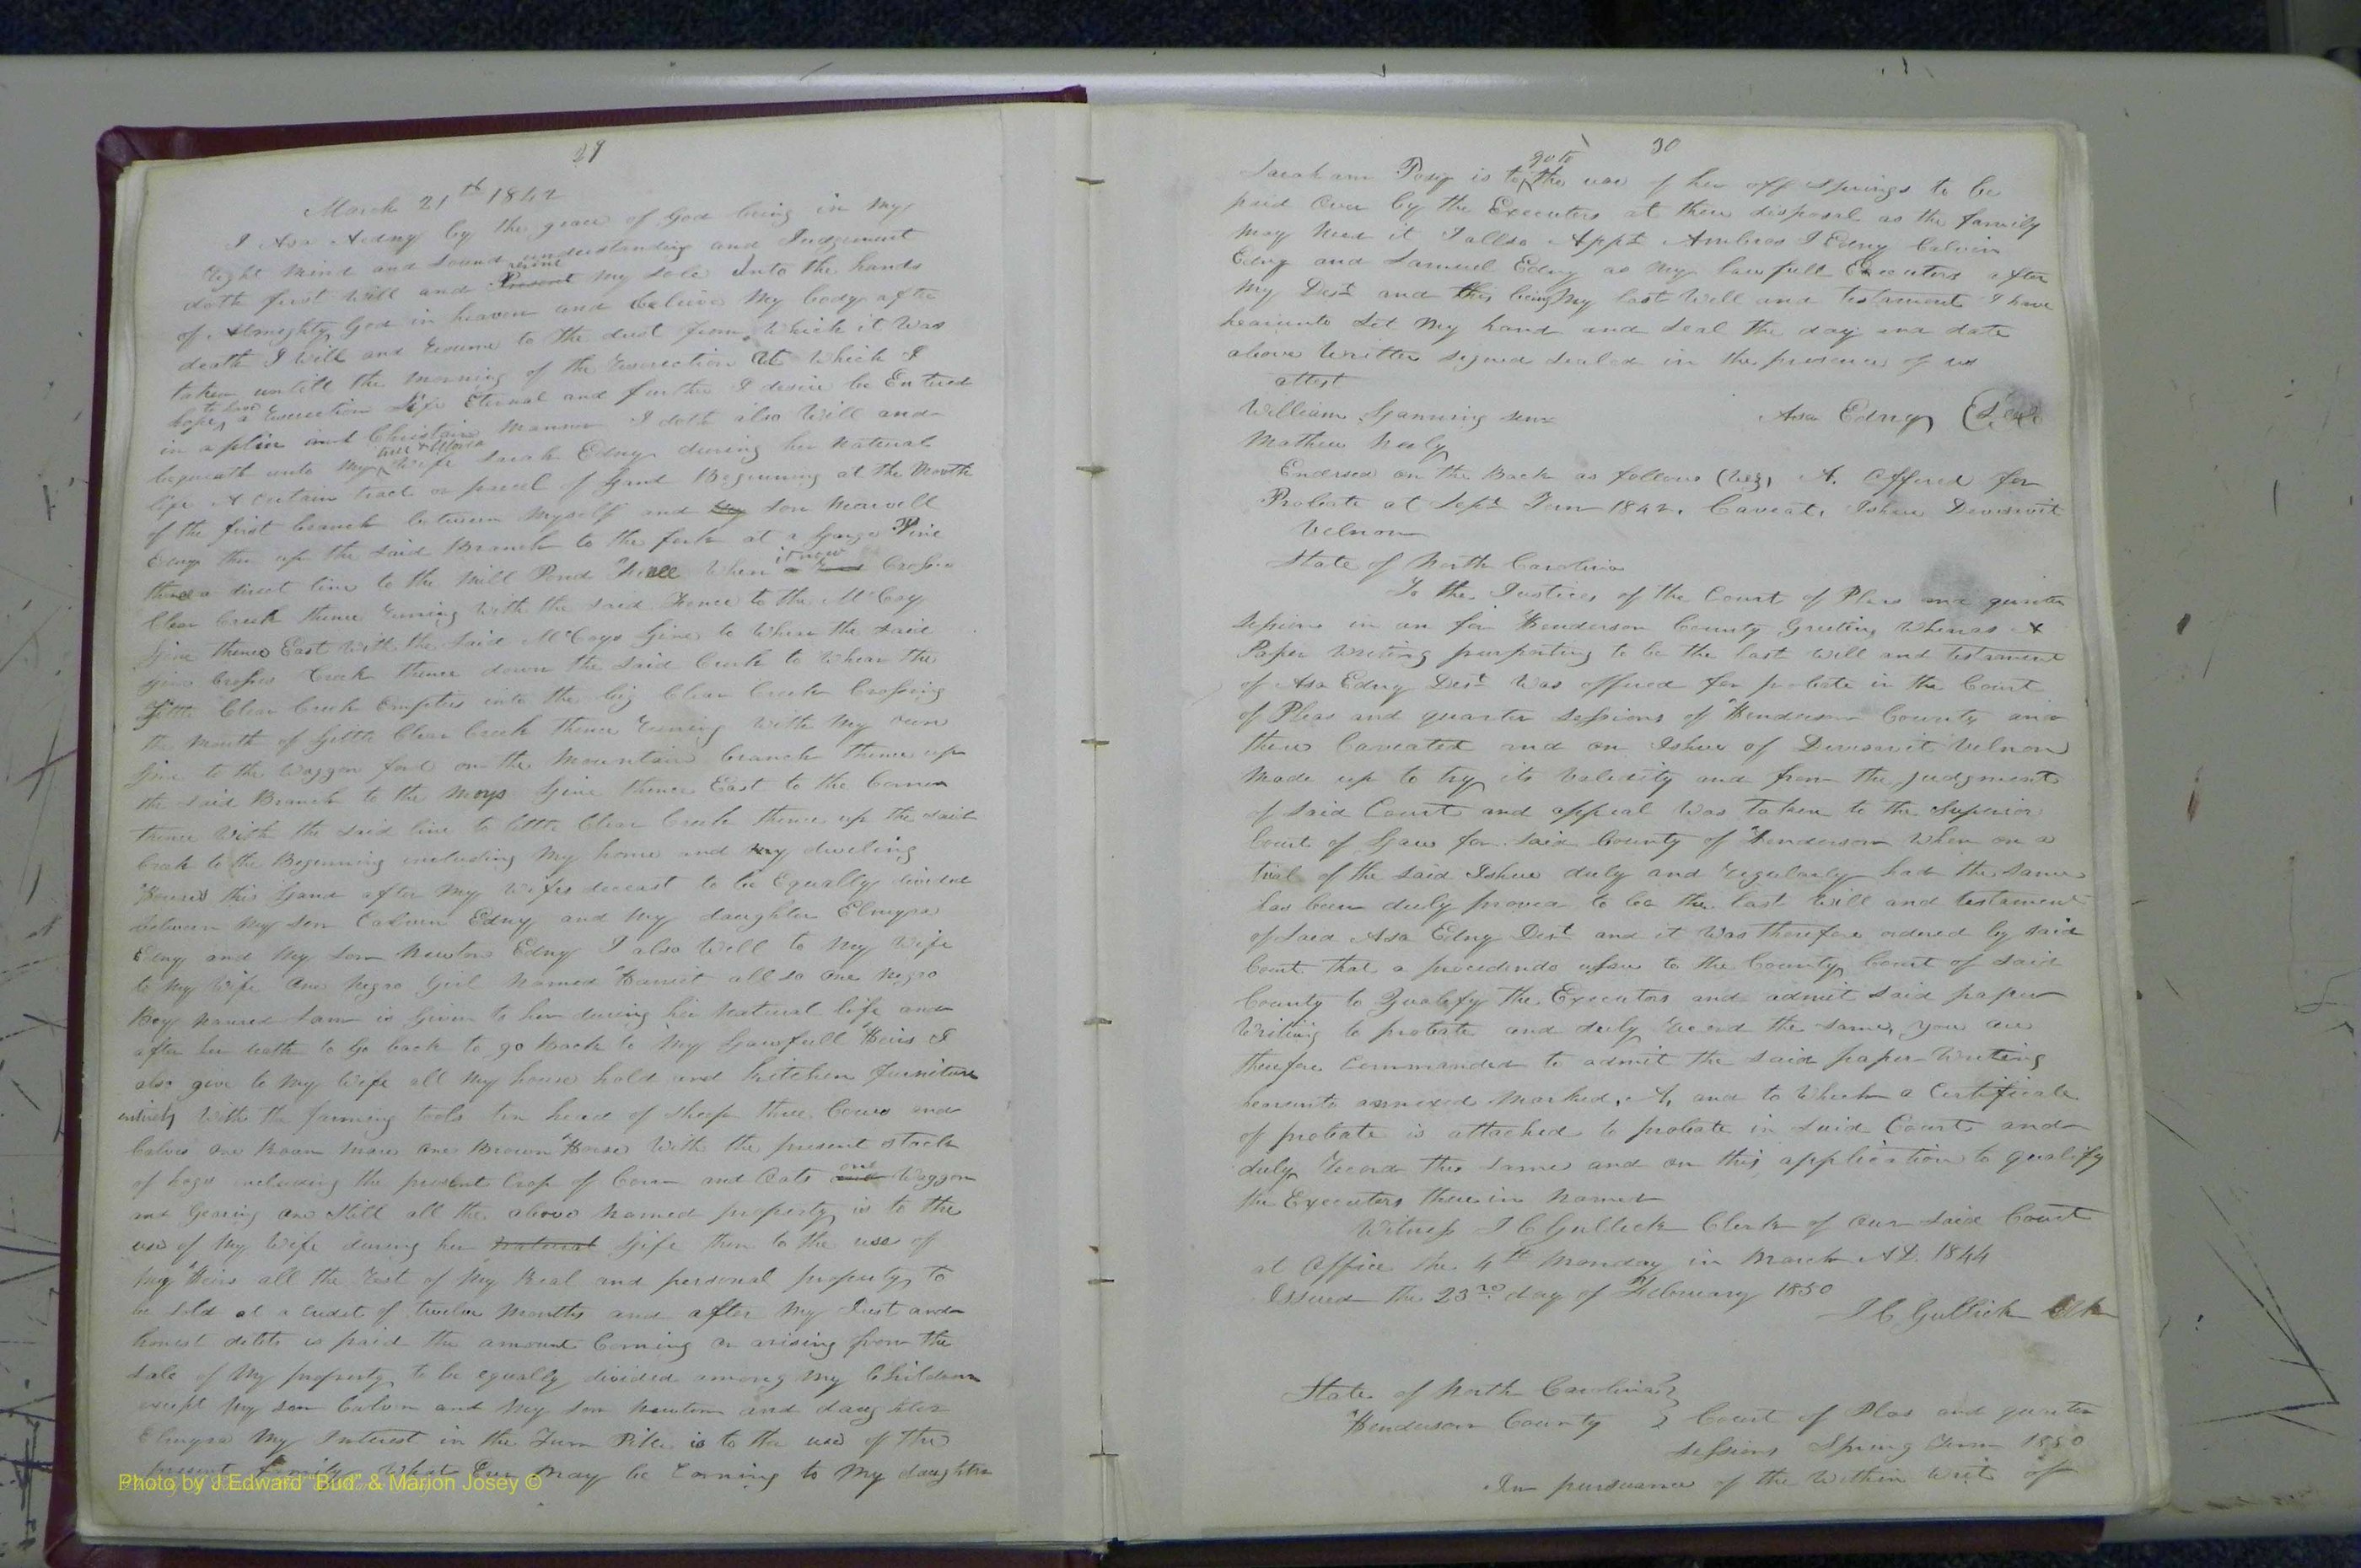 29
March 21th 1842
I Asa Aedny by the grace of God being in my
Right mind and Sound understanding and Judgement
doth first Will and Present my Sole Into the hands
of Almighty God in heaven and believe My body after
death I Will and to the dust from Which it Was
taken untill the Morning of the Resurection At Which I
hope to have a resurection Life Eternal and further I desire be Entered
in a plain Christain Manner I doth also Will and
bequeath unto My Wife Sarah Edny during her Natural
life A Certain tract or parcel of Land Beginning at the Mouth
of the first branch between Myself and my Son Marvell
Edny then up the said Branch to the fork at a Large Pine
thence a direct line to the Mill Pond When it now Crosses
Clear Creek thence runing With the said Fence to the McCoy
Line thence East With the said McCoys Line to Whear the said
Line Crosses Creek thence down the said Creek to Whear the
Little Clear Creek Empties into the big Clear Creek Crossing
the Mouth of Little Clear Creek thence runing With My own
Line to the Waggon ford on the Mountain branch thence up
the said Branch to the Line thence East to the Corner
thence With the said line to little Clear Creek thence up the said
Creek to the Beginning including My home and My dweling
Houses this Land after My Wifes deceast to be Equally divided
between My son Calvin Edny and My daughter Elmyra
Edny and My Son Newton Edny I also Will to My Wife
to My Wife One Negro Girl Named Harriet all so One Negro
Boy Named Sam is Given to her during her Natural life and
after her death to Go back to go back to My Lawfull Heirs I
also give to My Wife all My house hold and kitchen furniture
entirely With the farming tools ten head of Sheep three Cows and
Calves One Roan Mare One Brown Horse With the present stock
of hogs including the present Crop of Corn and Oats one Waggon
and Gearing One Still all the above Named property is to the
use of My Wife during her Natural Life then to the use of
My Heirs all the Rest of My Real and personal property to
be Sold at a Credit of twelve Months and after My Just and
honest debts is paid the amount Coming or arising from the
Sale of My property to be equally divided among My Children
except My son Calvin and My son Newton and daughter
Elmyra My Interest in the Turn Pike is to the use of the
present family What Ever May be Coming to My daughter
Photo by J.Edward "Bud" & Marion Josey ©
30
Sarah ann Posey is to go to the use of her off Springs to be
paid Over by the Executers at their disposal as the family
May Need it I allso Appt Ambros I Edny Calvin
Edny and Samuel Edny as My lawfull Executers after
My Dest and this being My last Will and testament I have
heaiunto Set My hand and Seal the day and date
above Written signed sealed in the presence of us
attest
William Senr
Asa Edney (Seal)
Mathew Neely
Endorsed on the Back as follows (viz) A. Offered for
Probate at Sept Term 1842. Caveat. Ishue Devisavit
Velnon
State of North Carolina
To the Justices of the Court of Pleas and quarter
Sessions in an for Henderson County Greeting Whereas A
Paper Writing purporting to be the last Will and testament
of Asa Edny Dest Was offered for probate in the Court
of Pleas and quarter Sessions of Henderson County and
there Caveated and on Ishue of Devisavit Velnon
Made up to try its Validity and from the Judgment
of said Court and appeal Was Taken to the Superior
Court of Law for said County of Henderson When on a
trial of the said Ishue duly and regularly had the same
has been duly proved to be the last Will and testament
of said Asa Edny Dest and it Was therefore ordered by said
Court that a procedendo to the County Court of said
County to Qualify the Executors and admit said paper
Writing to probate and duly Record the same, you are
therefore Commanded to admit the said paper-Writing
hereunto annexed Marked, A, and to Which a Certificate
of probate is attached to probate in said Court and
duly Record the same and on this application to qualify
the Executers therein Named
Witness J C Gullick Clerk of Our said Court
at Office the 4th Monday in March AD. 1844
Issued the 23rd day of February 1850
J C Gullick Clk
State of North Carolina }
Henderson County } Court of Pleas and quarter
Sessions Spring Term 1850
In pursuance of the Within Writ of